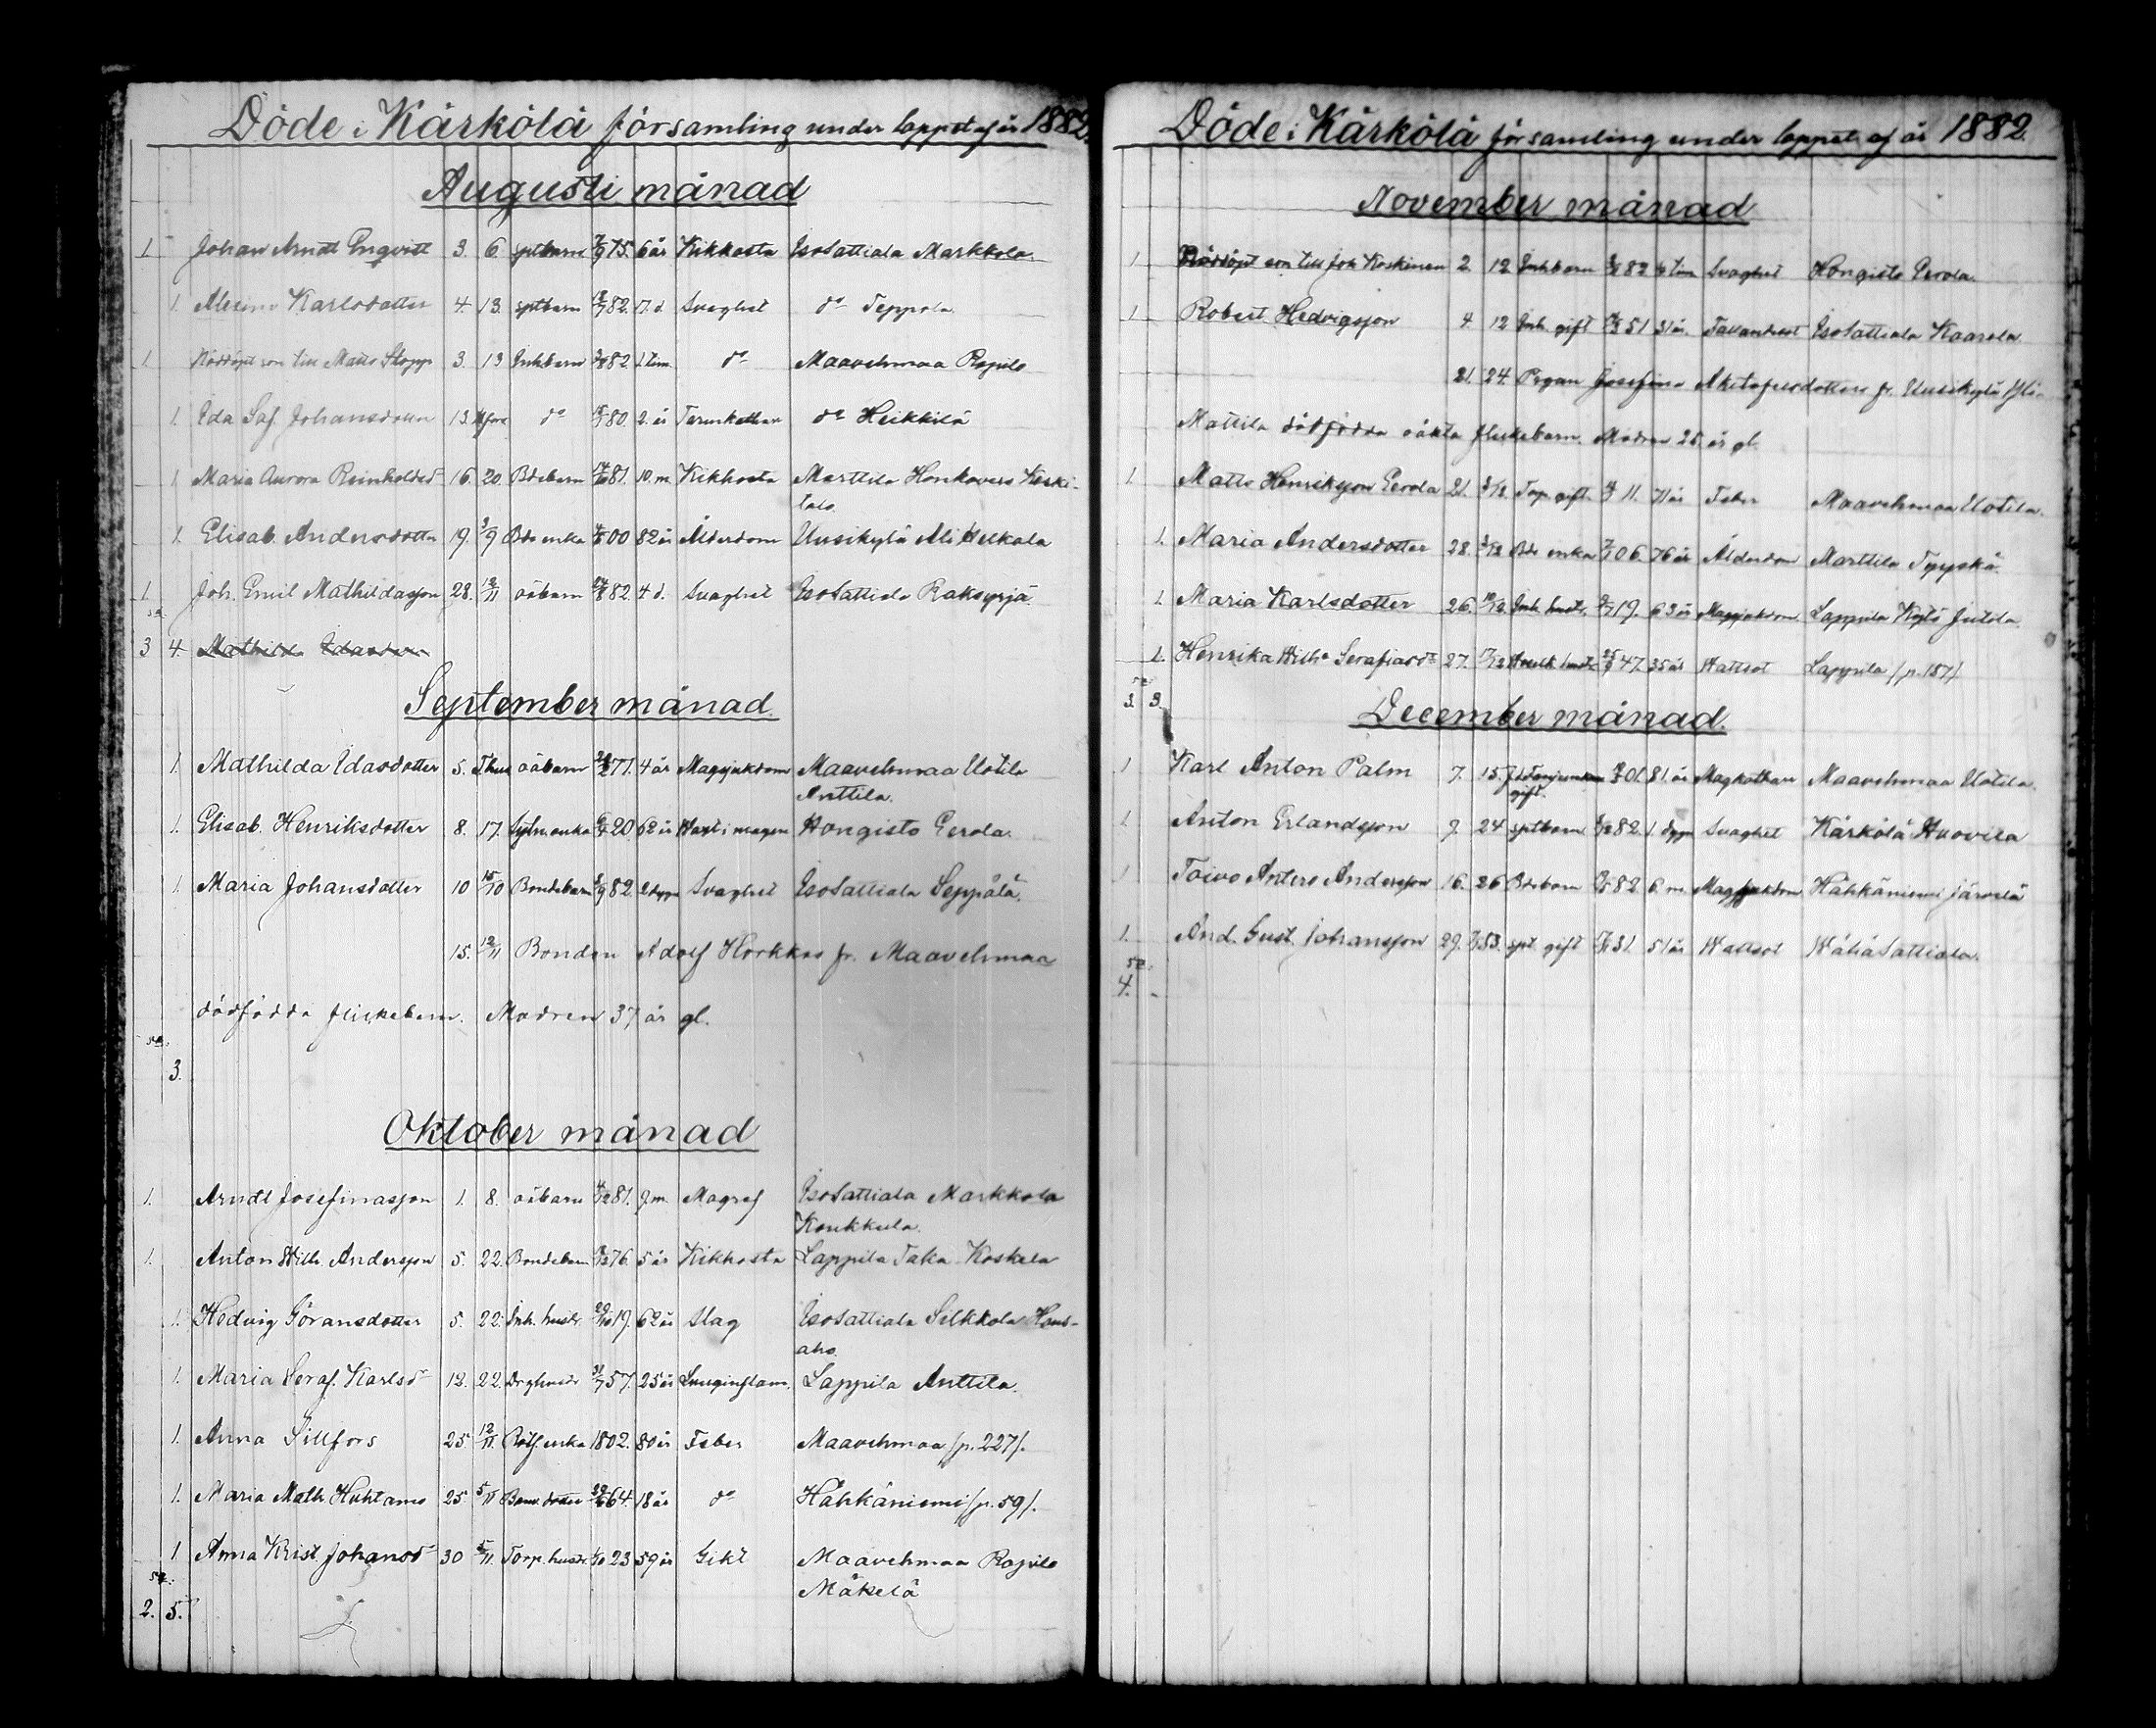 Döde i Kärkölä församling under loppet af år 1882.
Augusti månad
1. Johan Arndt Enqvist 3. 6. sptbarn 75. 6 år Kikhosta IsoSattiala Markkola.
1. Karlsdotter 4. 13. sptbarn 82. 17. d. Svaghet do Seppälä
1. Nöddöpt son till Matts 3. 13 Inhbarn 82. 1 tim. do Maavehmaa Rapila
1. Ida Saf. Johansdotter 13. do 80. 2. år do Heikkilä
1. Maria Aurora Reinholdsd 16. 20. Bdebarn 81. 10. m. Kikhosta Marttila Honkavuos Keski-
talo
1. Elisab. Andersdotter 19. 3/9 Bde enka 00 82 år Ålderdom Uusikylä Ali Helkala
1. Joh. Emil Mathildasson 28. 12/11 oäbarn 24/8 82. 4 d. Svaghet IsoSattiala Raksyrjä
sa
3 4. Mathilda Idasdotter
September månad.
1. Mathilda Idasdotter 5. oäbarn 77. 4 år Magsjukdom Maavehmaa Uotila
Anttila.
1. Elisab. Henriksdotter 8. 17. enka 20. 62 år i magen Hongisto Eerola.
1. Maria Johansdotter 10 15/10 Bondebarn 82. 2 dygn Svaghet IsoSattiala Seppälä.
15. 12/11 Bonden Adolf Horkkos fr. Maavehmaa
dödfödda flickebarn. Modren 37 år gl.
sa:
3.
Oktober månad
1. Arndt Josefinasson 1. 8. oäbarn 4/12 81. 9. m. Magref IsoSattiala Markkola
Koukkula.
1. Anton Wilh. Andersson 5. 22. Bondebarn 76. 5 år Kikhosta Lappila Taka Koskela
1. Hedvig Göransdotter 5. 22. Inh. hustr. 29/10 19. 62 år Slag IsoSattiala Silkkola
aho.
1. Maria Seraf. Karlsdr 12. 22. 31/7 57. 25 år Lunginflam. Lappila Anttila.
1. Anna Sillfors 25. 12/11. enka 1802. 80 år Feber Maavehmaa /p. 227/.
1. Maria Math. Huhtamo 25. 5/11 dotter 64. 18 år do Hähkäniemi /p. 59/.
1 Anna Krist. Johansd 30 5/11. Torp. hustr. 23 59 år Gikt Maavehmaa Rapila
Mäkelä
sa:
2. 5.
Döde i Kärkölä församling under loppet af år 1882.
November månad
1. Nöddöpt son till Joh Koskinen 2. 12 Inhbarn 82 tim Svaghet Hongisto Eerola.
1. Robert Hedvigsson 4. 12 Inh. gift 51 31 år. IsoSattiala Kaarola
21. 24. Pigan Josefina fr. Uusikylä
Mattila dödfödda oäkta flickebarn. Modren 25. år gl.
1. Matts Henriksson Eerola 21. 3/12. Torp. gift. 11. 71 år Feber Maavehmaa Uotila.
1. Maria Andersdotter 28. 3/12 Bde enka 06. 76 år Ålderdom Marttila Tyyskä.
1. Maria Karlsdotter 26. 10/12 Inh. hustr. 19. 63 år Magsjukdom Lappila Jutila.
1. Henrika Wilha Serafiasdr 27. 17/12 47. 35 år Wattsot Lappila /p. 157/
sa
3. 3.
December månad.
1 Karl Anton Palm 7. 15. 01. 81. år Magkathar Maavehmaa Uotila.
gift.
1. Anton Erlandsson 9. 24 sptbarn 82. 1. dygn Svaghet Kärkölä Huovila
1 Toivo Antero Andersson 16. 26 Bdebarn 82. 6. m. Magsjukdom Hähkäniemi Järvelä
1. And. Gust. Johansson 29. 7/1 83. spt. gift 31. 51 år Wattsot WähäSattiala.
sa:
4. -